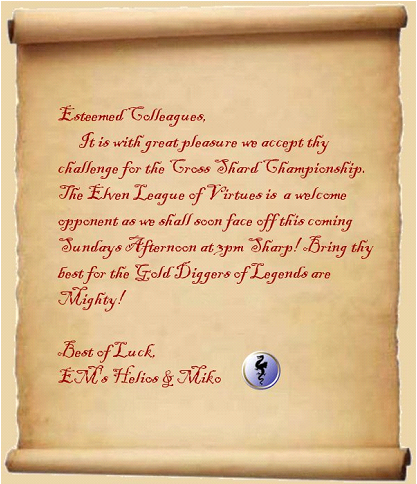 Esteemed Colleagues,
It is with great pleasure we accept thy
challenge for the Cross Shard Championship.
The Elven League of Virtues is a welcome
opponent as we shall soon face off this coming
Sundays Afternoon at 3pm Sharp! Bring thy
best for the Gold Diggers of Legends are
Mighty!
Best of Luck,
EM's Helios & Miko